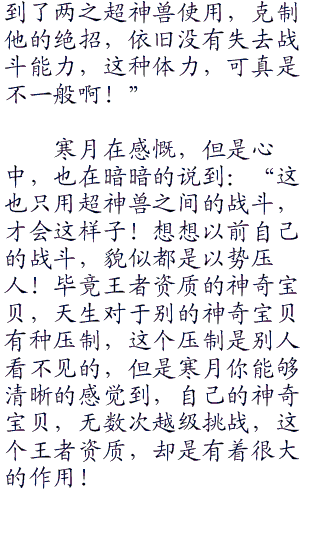 到了两之超神兽使用，克制
他的绝招，依旧没有失去战
斗能力，这种体力，可真是
不一般啊！”
寒月在感慨，但是心
中，也在暗暗的说到：“这
也只用超神兽之间的战斗，
才会这样子！想想以前自己
的战斗，貌似都是以势压
人！毕竟王者资质的神奇宝
贝，天生对于别的神奇宝贝
有种压制，这个压制是别人
看不见的，但是寒月你能够
清晰的感觉到，自己的神奇
宝贝，无数次越级挑战，这
个王者资质，却是有着很大
的作用！